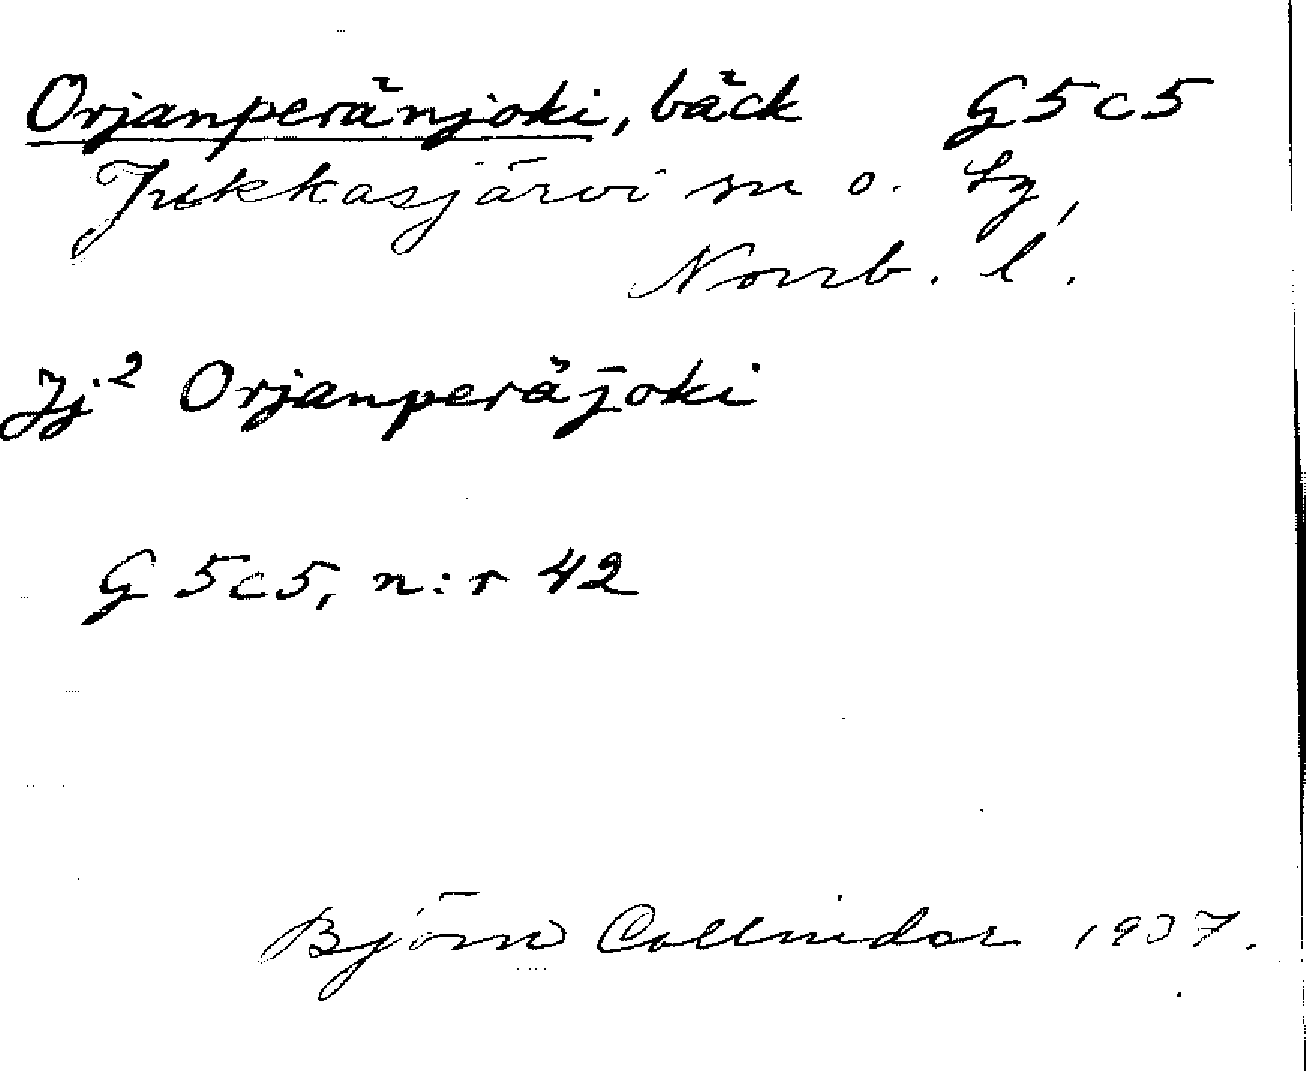 Orjanperänjoki, bäck G5c5
Jukkasjärvi sn o. lg,
Norrb. l.
Jj² Orjanperäjoki
G 5c5, n:r 42
Björn Collinder 1937.